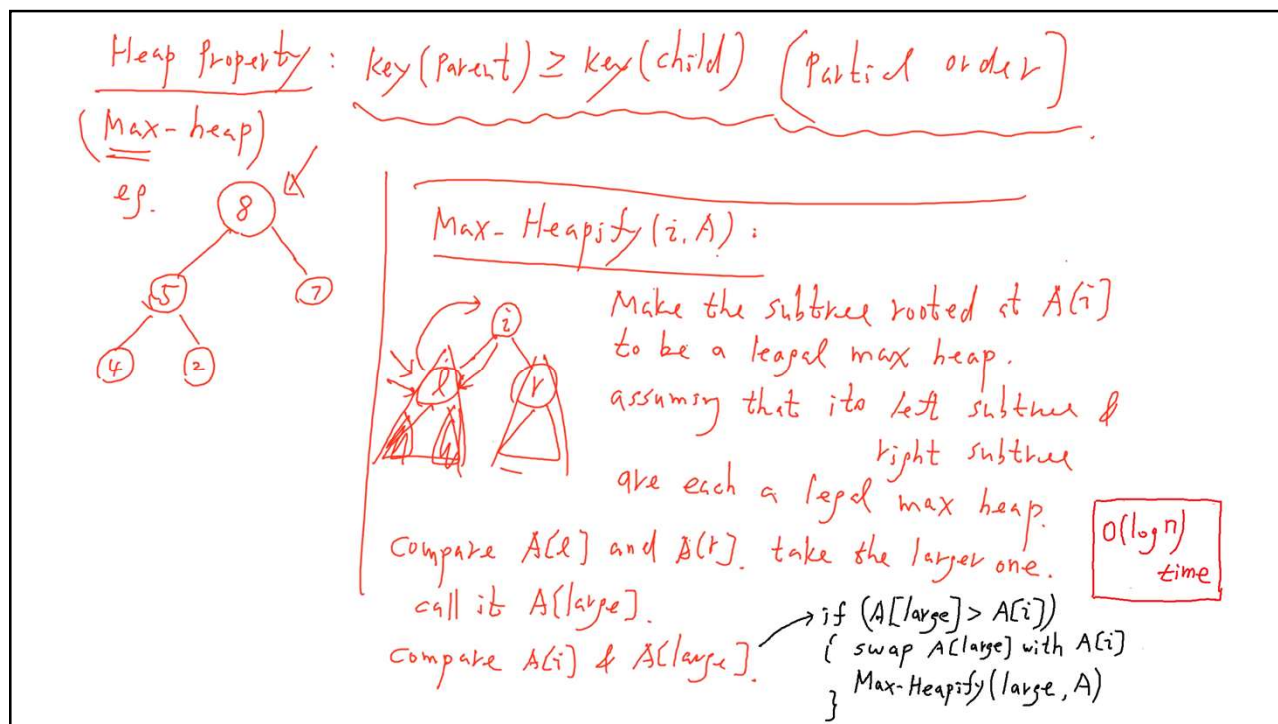 Heap Property : key(Parent) ≥ key(child) [Partial order]
(Max-heap)
eg.
8
5 7
4 2
Max-Heapify(i, A) :
i
l r
Make the subtree rooted at A[i]
to be a leagal max heap.
assuming that its left subtree &
right subtree
are each a legal max heap.
Compare A[l] and A[r]. take the larger one.
call it A[large].
compare A[i] & A[large].
if (A[large] > A[i])
{ swap A[large] with A[i]
Max-Heapify(large, A)
}
O(log n)
time